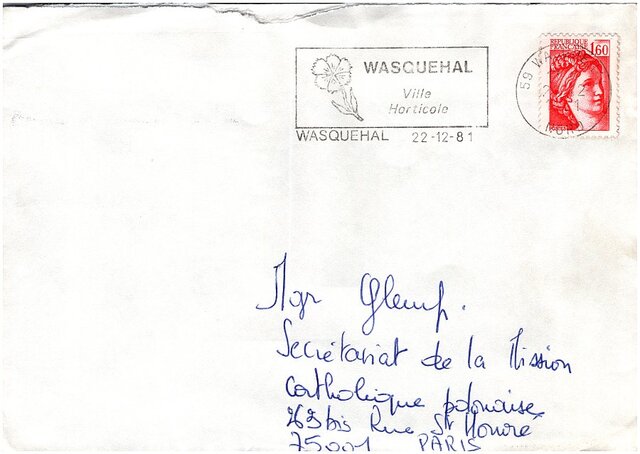 WASQUEHAL
Ville
Horticole
WASQUEHAL 22-12-81
REPUBLIQUE
FRANÇAISE 1,60
59
Mgr Glemp.
Secrétariat de la Mission
Catholique polonaise
263 bis Rue St Honoré
75001 PARIS